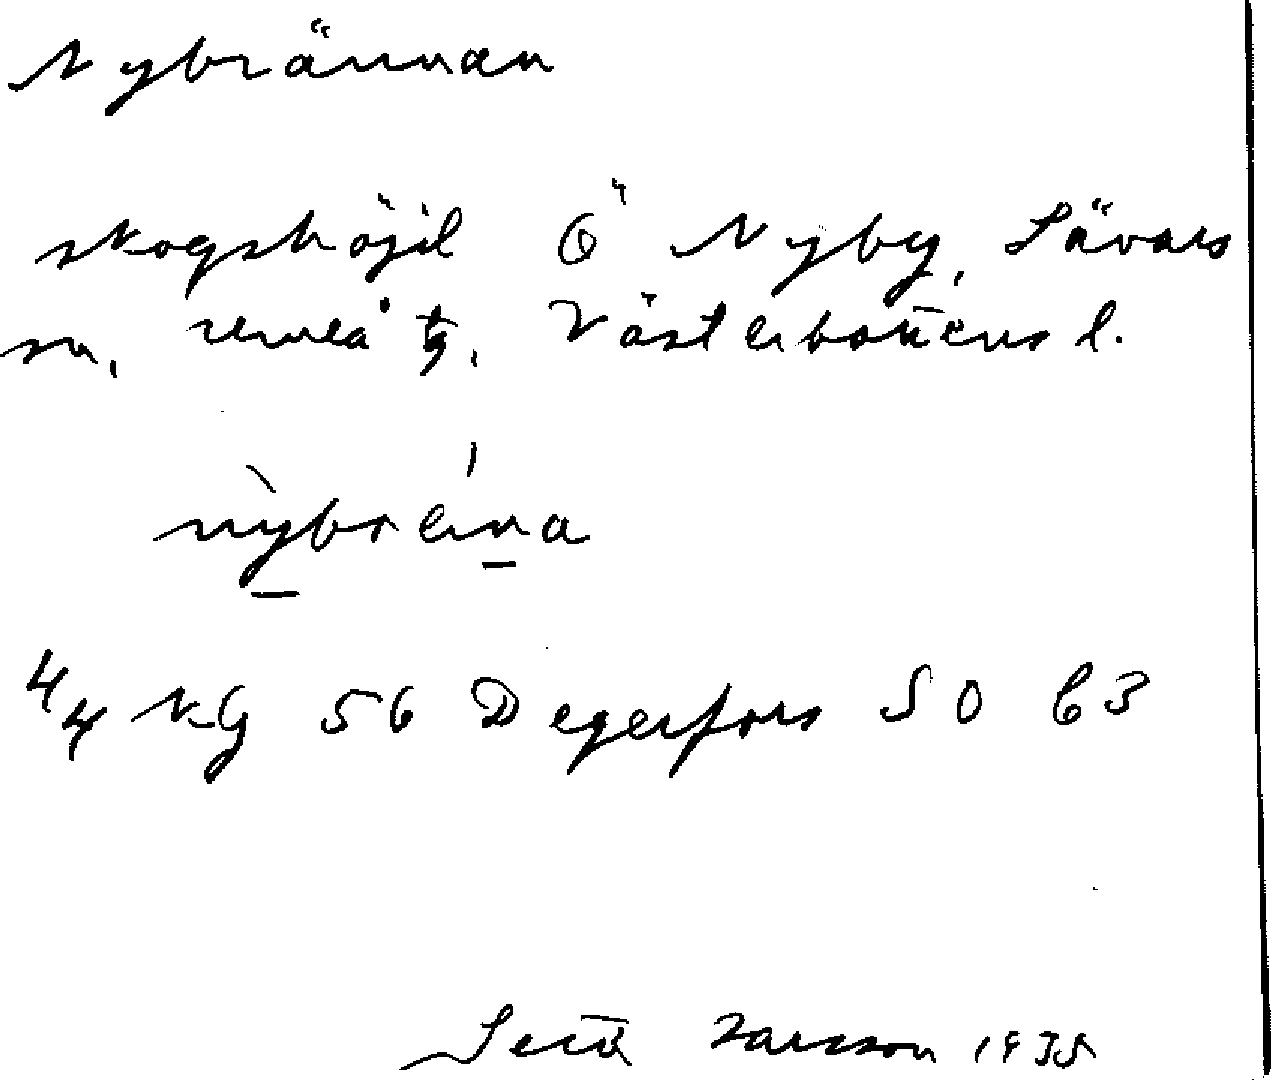 Nybrännan
skogshöjd Ö Nyby, Sävars
sn, Umeå tg, Västerbottens l.
4/4 KG 56 Degerfors SO C3
Larsson 1935